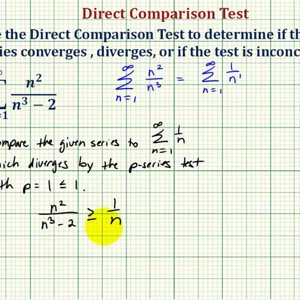 Direct Comparison Test
e the Direct Comparison Test to determine if th
ies converges , diverges, or if the test is inconc
∞ Σ n=1 n² / n³ − 2
∞ Σ n=1 n² / n³ = ∞ Σ n=1 1 / n¹
ompare the given series to ∞ Σ n=1 1 / n
hich diverges by the p-series test
th p = 1 ≤ 1.
n² / n³ − 2 ≥ 1 / n